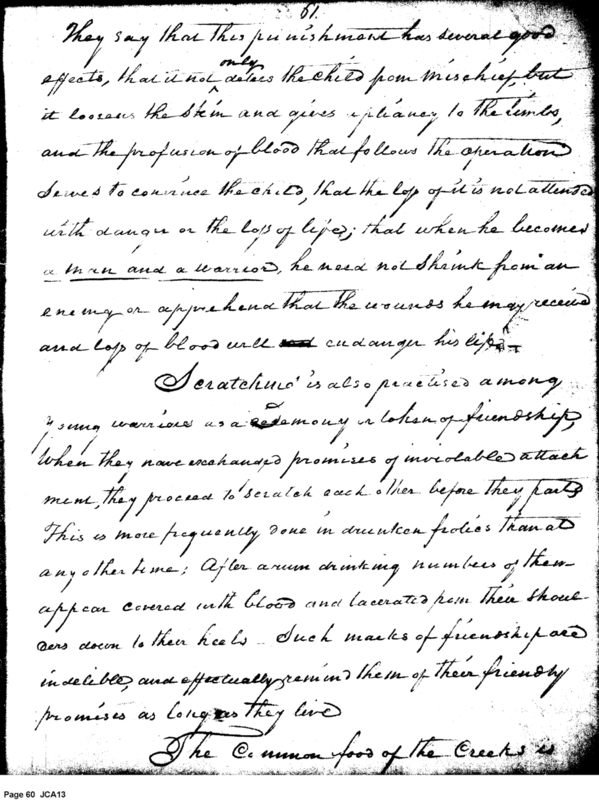 61.
They say that this punishment has several good
only
effects, that it not deters the child from mischief, but
it loosens the skin and gives a pliancy to the limbs,
and the profusion of blood that follows the operation
serves to convince the child, that the loss of it is not attended
with danger or the loss of life; that when he becomes
a man and a warrior, he need not shrink from an
enemy or apprehend that the wounds he may receive
and loss of blood will endanger his life.
Scratching is also practised among
young warriors as a ceremony or token of friendship,
When they have exchanged promises of inviolable attach
ment, they proceed to scratch each other before they part
This is more frequently done in drunken frolics than at
any other time; After a rum drinking numbers of them
appear covered with blood and lacerated from their shoul-
ders down to their heels - Such marks of friendship are
indelible, and effectually remind them of their friendly
promises as long as they live
The Common food of the Creeks is
Page 60 JCA13